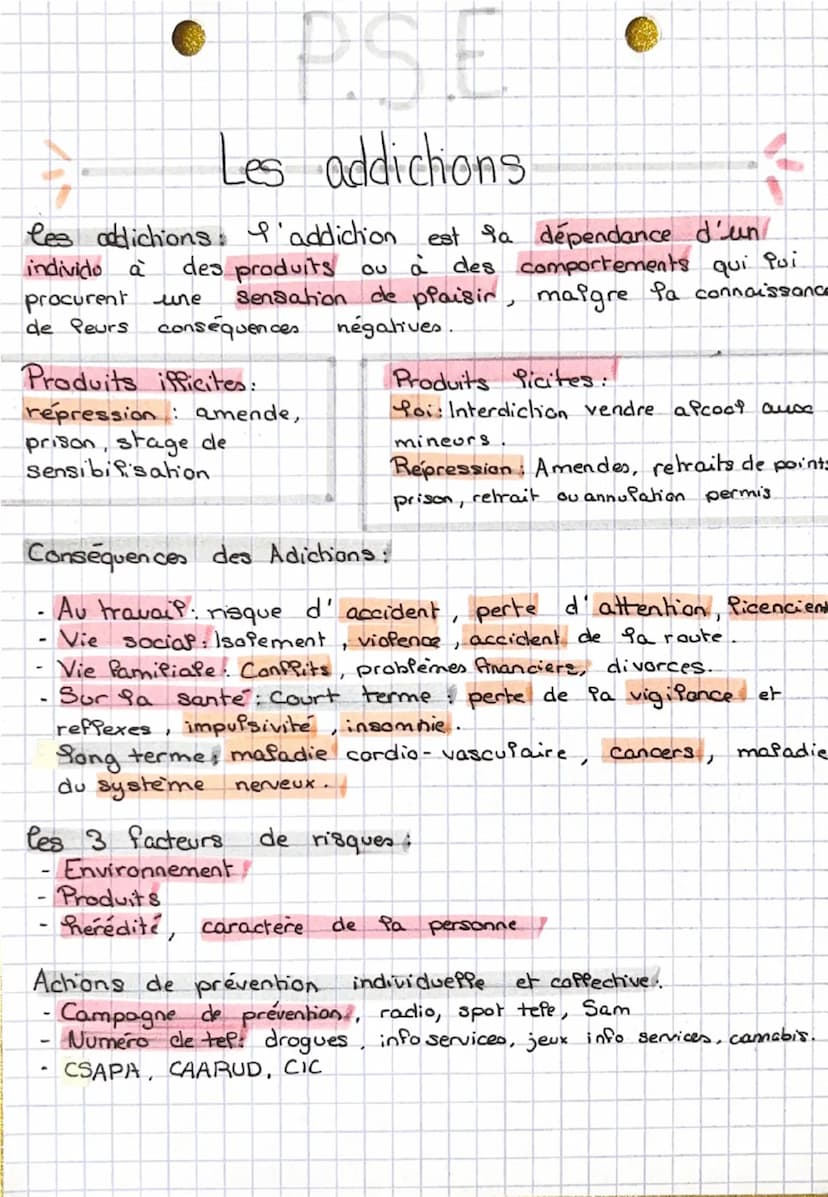 P.S.E
Les addictions
Les addictions : l'addiction est la dépendance d'un
individo à des produits ou à des comportements qui lui
procurent une sensation de plaisir, malgre la connaissance
de leurs conséquences négatives.
Produits illicites :
répression : amende,
prison, stage de
sensibilisation
Produits licites :
Loi : Interdiction vendre alcool aux
mineurs.
Répression : Amendes, retraits de points
prison, retrait ou annulation permis
Conséquences des Adictions :
- Au travail : risque d'accident, perte d'attention, licenciem
- Vie social : Isolement, violence, accident de la route.
- Vie familiale : Conflits, problèmes financiers, divorces.
- Sur la santé : Court terme : perte de la vigilance et
reflexes, impulsivité, insomnie.
Long terme : maladie cardio-vasculaire, cancers, maladie
du système nerveux.
Les 3 facteurs de risques :
- Environnement
- Produits
- hérédité, caractère de la personne
Actions de prévention individuelle et collective :
- Campagne de prévention, radio, spot tele, Sam
- Numéro de tel : drogues, info services, jeux info services, cannabis.
- CSAPA, CAARUD, CIC